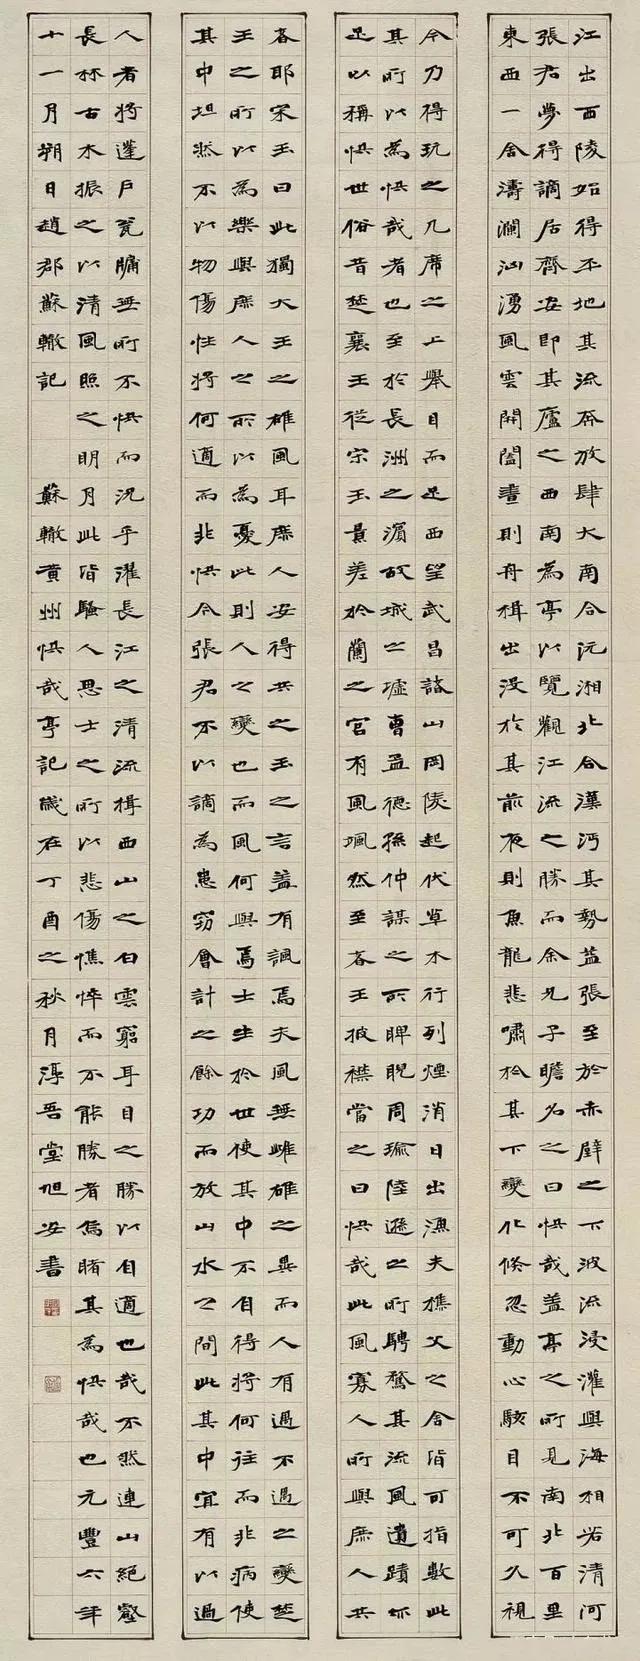 江出西陵始得平地其流奔放肆大南合沅湘北合漢沔其勢益張至於赤壁之下波流浸灌與海相若清河
張君夢得謫居齊安即其廬之西南為亭以覽觀江流之勝而余兄子瞻名之曰快哉蓋亭之所見南北百里
東西一舍濤瀾洶湧風雲開闔晝則舟楫出沒於其前夜則魚龍悲嘯於其下變化倏忽動心駭目不可久視
今乃得玩之几席之上舉目而足西望武昌諸山岡陵起伏草木行列煙消日出漁夫樵父之舍皆可指數此
其所以為快哉者也至於長洲之濱故城之墟曹孟德孫仲謀之所睥睨周瑜陸遜之所騁騖其流風遺蹟亦
足以稱快世俗昔楚襄王從宋玉景差於蘭之宮有風颯然至者王披襟當之曰快哉此風寡人所與庶人共
者耶宋玉曰此獨大王之雄風耳庶人安得共之玉之言蓋有諷焉夫風無雌雄之異而人有遇不遇之變楚
王之所以為樂與庶人之所以為憂此則人之變也而風何與焉士生於世使其中不自得將何往而非病使
其中坦然不以物傷性將何適而非快今張君不以謫為患竊會計之餘功而放山水之間此其中宜有以過
人者將蓬戶甕牖無所不快而況乎濯長江之清流楫西山之白雲窮耳目之勝以自適也哉不然連山絕壑
長林古木振之以清風照之明月此皆騷人思士之所以悲傷憔悴而不能勝者烏睹其為快哉也元豐六年
十一月朔日趙郡蘇轍記 蘇轍黃州快哉亭記歲在丁酉之秋月淳吾堂旭安書